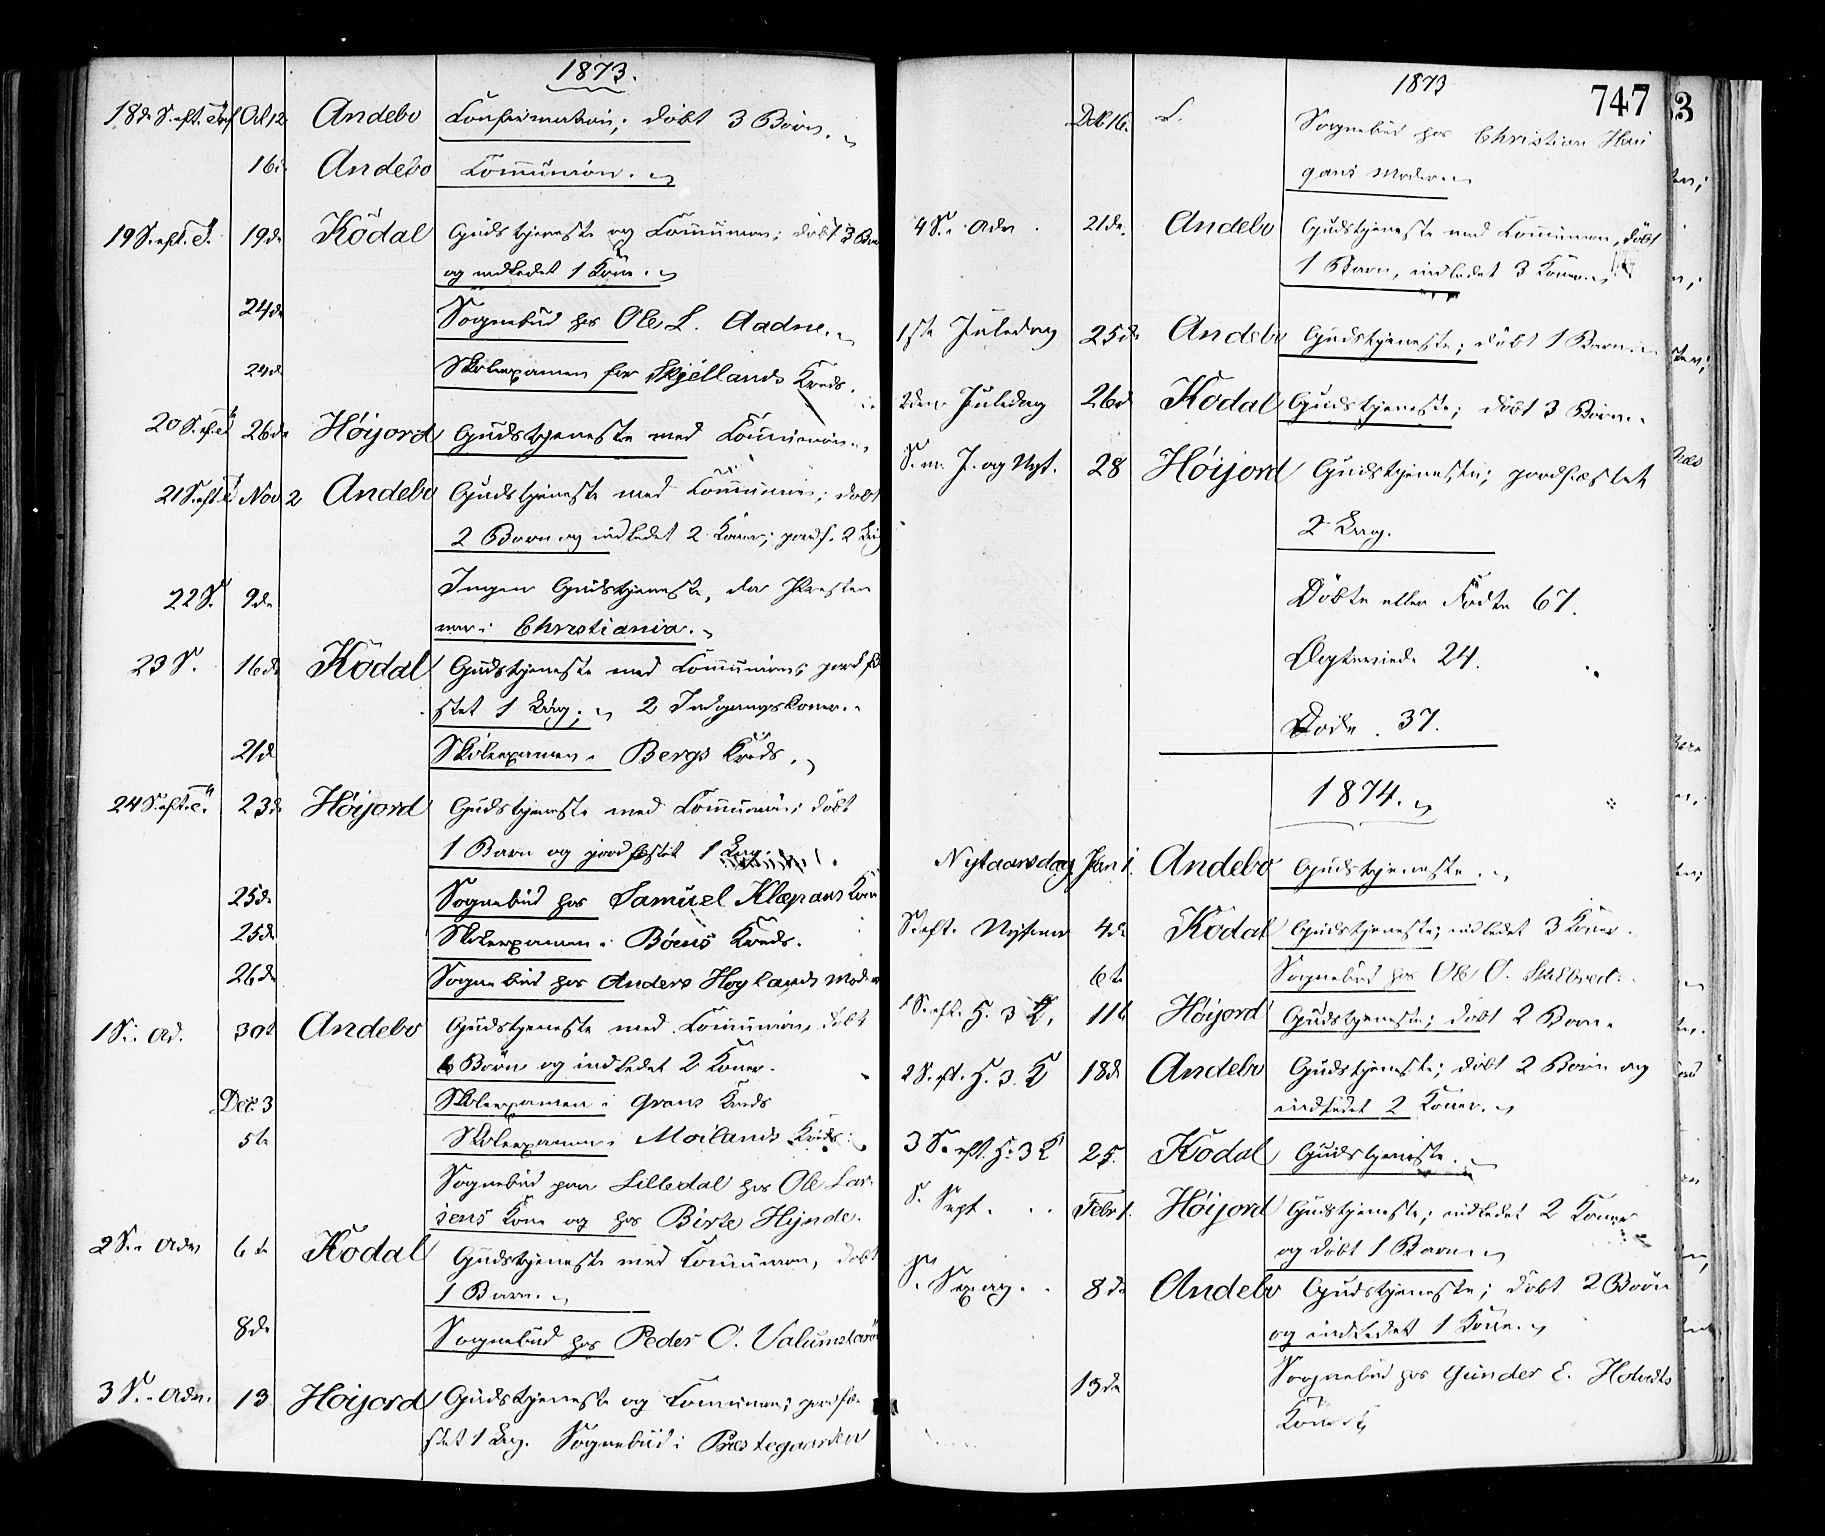 1873.
18de S. eft. Tref Oct 12 Andebo Confirmation; døbt 3 Børn.
16de Andebo Communion.
19 S. eft. T. 19de Kodal Gudstjeneste og Communion; døbt 3 Børn
og indledet 1 Kone.
24de Sognebud hos Ole L. Aadne.
24de Skoleexamen for Skjellands Kreds.
20 S. ef. T 26de Høijord Gudstjeneste med Communion.
21 S. eft T Nov 2 Andebo Gudstjeneste med Communion; døbt
2 Børn og indledet 2 Koner; jordf. 2 Lig
22 S. 9de Ingen Gudstjeneste, da Præsten
var i Christiania.
23 S. 16de Kodal Gudstjeneste med Communion; jordfæ
stet 1 Lig; 2 Indgangskoner.
21de Skoleexamen i Bergs Kreds.
24 S. eft. T. 23de Høijord Gudstjeneste med Communion; døbt
1 Barn og jordfæstet 1 Lig.
25de Sognebud hos Samuel Klæpans Kone
25de Skoleexamen i Bøens Kreds.
26de Sognebud hos Anders Høylands Moder
1 S. i Ad. 30te Andebo Gudstjeneste med Communion, døbt
6 Børn og indledet 2 Koner.
Dec. 3 Skoleexamen i Grans Kreds
5te Skoleexamen i Moilands Kreds.
Sognebud paa Lilledal hos Ole Lar-
sens Kone og hos Birte Hynde.
2 S. i Adv 6te Kodal Gudstjeneste med Communion, døbt
1 Barn.
8de Sognebud hos Peder O.
3 S. i Adv. 13 Høijord Gudstjeneste og Communion; jordfæ-
stet 1 Lig. Sognebud i Præstegaarden
1873
747
Dec 16. Sognebud hos Christian
Moder
4 S. i Adv. 21de. Andebo Gudstjeneste med Communion, døbt
1 Barn, indledet 3 Koner.
1ste Juledag 25de Andebo Gudstjeneste; døbt 1 Barn
2den Juledag 26de Kodal Gudstjeneste; døbt 3 Børn.
S. m. J. og Nyt. 28 Høijord Gudstjeneste; jordfæstet
2 Lig.
Döbte eller Födte 67.
Ægteviede 24.
Døde. 37.
1874.
Nytaarsdag Jan 1. Andebo Gudstjeneste.
S. eft. Nytaar 4de Kodal Gudstjeneste; indledet 3 Koner.
6te Sognebud hos Ole O.
1 S. eft. H. 3 K. 11te Høijord Gudstjeneste; døbt 2 Børn.
2 S. eft. H. 3. K 18de Andebo Gudstjeneste; døbt 2 Børn og
indledet 2 Koner.
3 S. eft. H. 3 K 25. Kodal Gudstjeneste.
S. Sept. Febr 1. Høijord Gudstjeneste; indledet 2 Koner
og døbt 1 Barn
S. Sexag. 8de Andebo Gudstjeneste; døbt 2 Børn
og indledet 1 Kone.
13de Sognebud hos Gunder E. Hotvedts
Kone